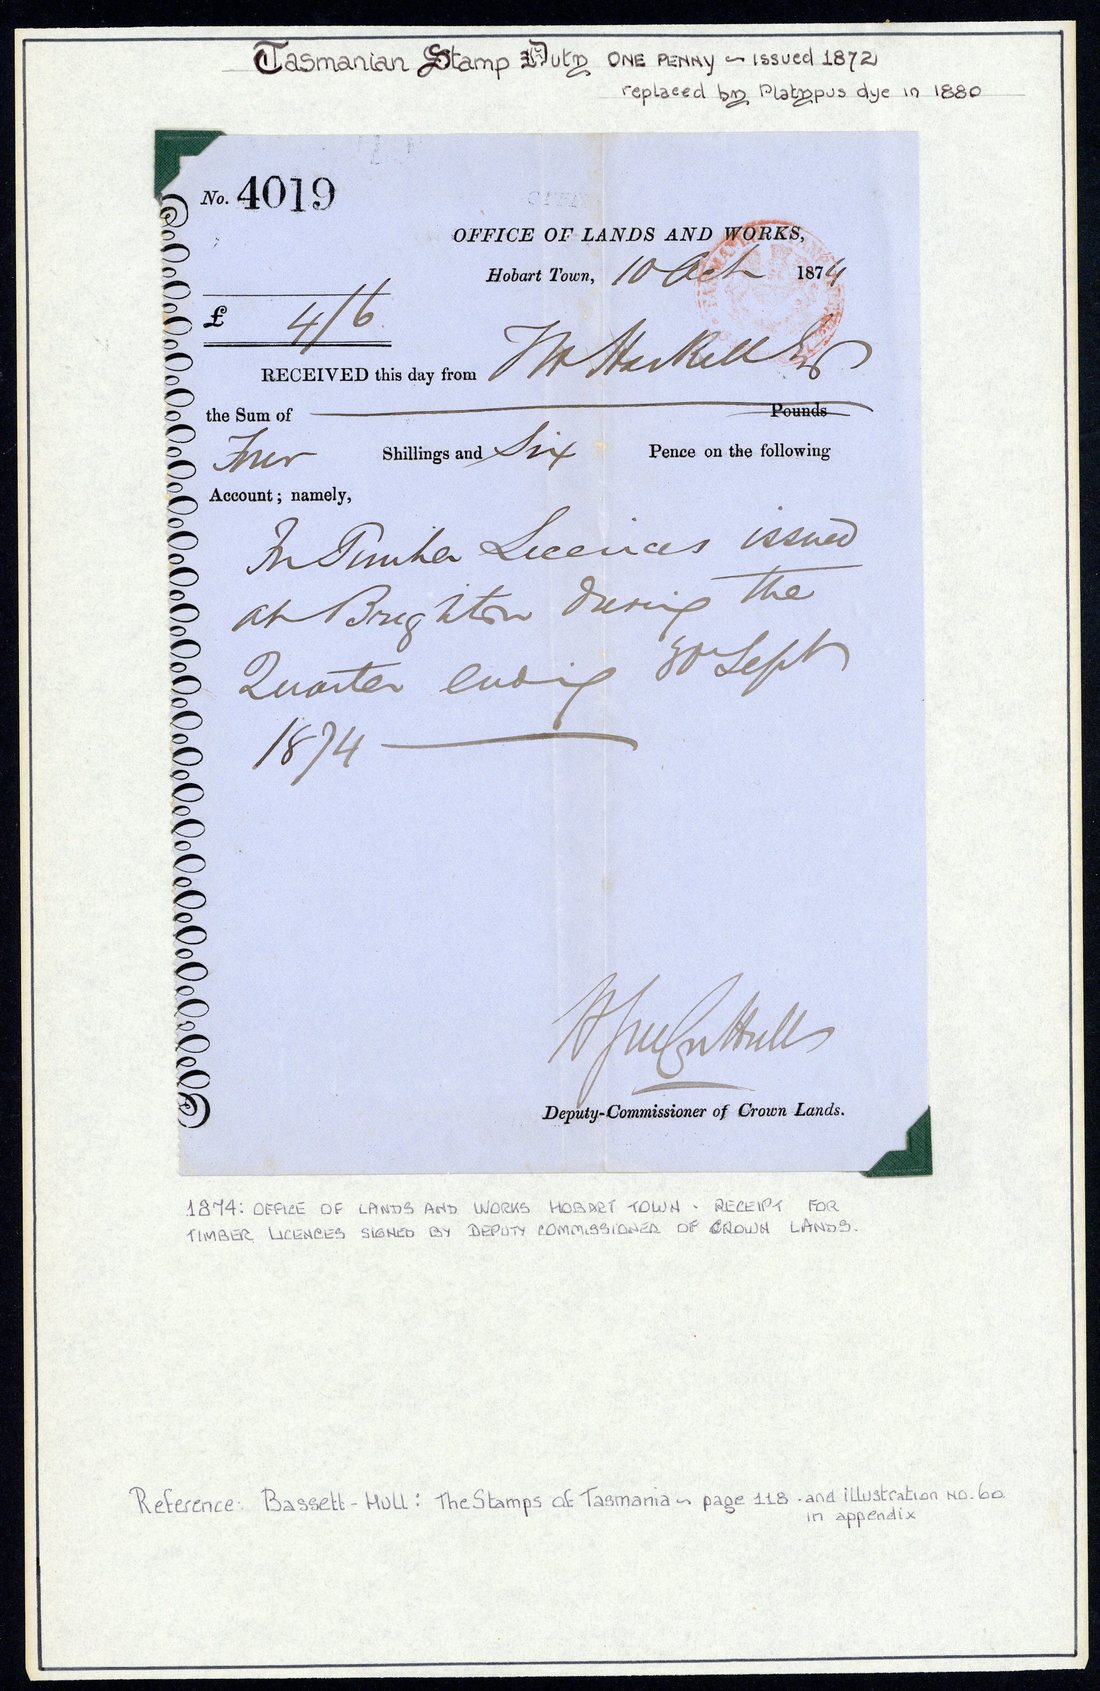 Tasmanian Stamp Duty ONE PENNY ~ issued 1872
replaced by Platypus dye in 1880
No. 4019
OFFICE OF LANDS AND WORKS,
Hobart Town, 10 Oct 1874
£ 4/6
RECEIVED this day from Haskell Esq
the Sum of Pounds
Four Shillings and Six Pence on the following
Account; namely,
For Timber Licences issued
at Brighton during the
Quarter ending 30 Sept
1874
Deputy-Commissioner of Crown Lands.
1874: OFFICE OF LANDS AND WORKS HOBART TOWN · RECEIPT FOR
TIMBER LICENCES SIGNED BY DEPUTY COMMISSIONER OF CROWN LANDS.
Reference: Bassett-Hull: The Stamps of Tasmania ~ page 118 · and illustration NO. 60
in appendix